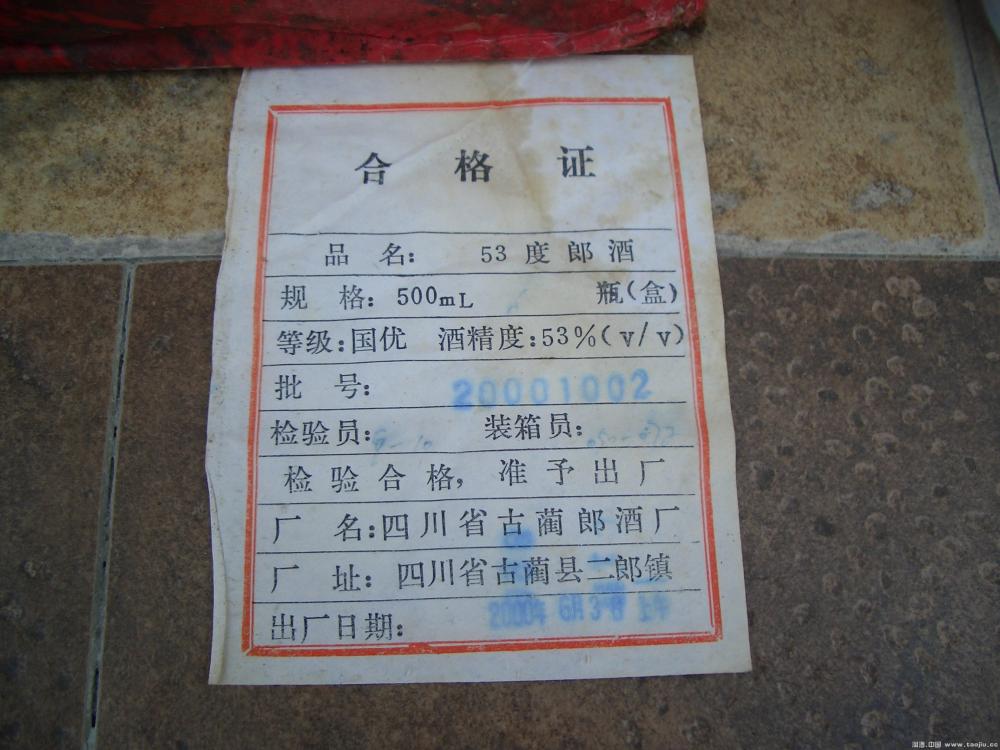 合格证
品名: 53度郎酒
规格: 500mL 瓶(盒)
等级:国优 酒精度:53%(v/v)
批号: 20001002
检验员: 装箱员:
检验合格,准予出厂
厂名:四川省古蔺郎酒厂
厂址: 四川省古蔺县二郎镇
出厂日期: 2000年6月3日 上午
淘酒.中国 www.taojiu.cc